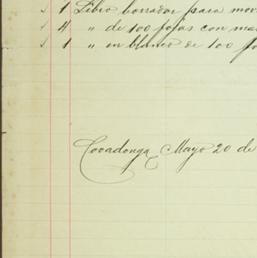 1 Libro borrador para mov
4 " de 100 fojas con ma
1 " en blanco de 100 fo
Covadonga, Mayo 20 de